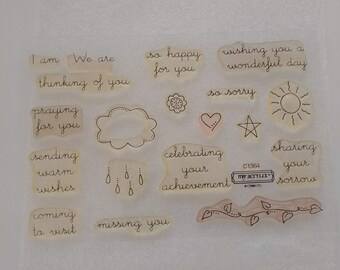 I am We are
thinking of you
so happy
for you
wishing you a
wonderful day
praying
for you
so sorry
sending
warm
wishes
celebrating
your
achievement
sharing
your
sorrow
coming
to visit
missing you